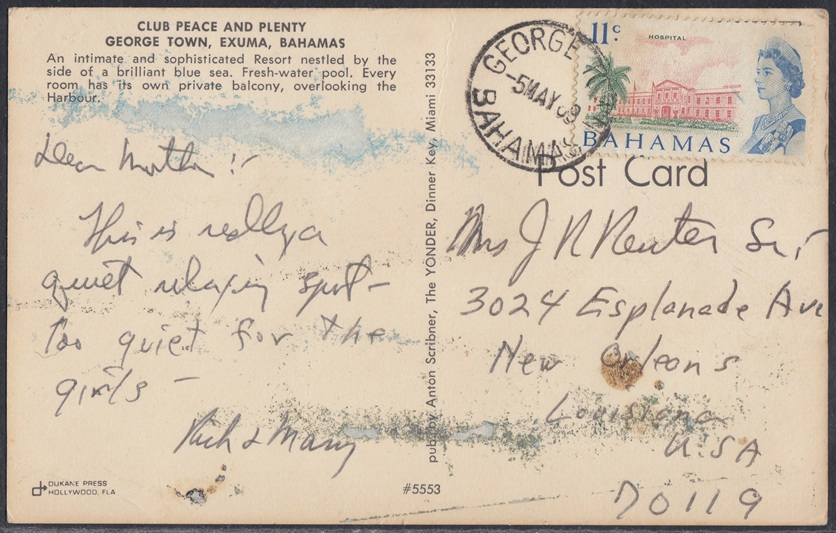 CLUB PEACE AND PLENTY
GEORGE TOWN, EXUMA, BAHAMAS
An intimate and sophisticated Resort nestled by the
side of a brilliant blue sea. Fresh-water pool. Every
room has its own private balcony, overlooking the
Harbour.
Dear Mother :-
This is really a
quiet relaxing spot -
Too quiet for the
girls -
Rich & Mary
DUKANE PRESS
HOLLYWOOD, FLA
#5553
pub. by Anton Scribner, The YONDER, Dinner Key, Miami 33133
GEORGE
-5MAY 69
BAHAMAS
11c
HOSPITAL
BAHAMAS
Post Card
Mrs J R Reuter Sr.
3024 Esplanade Ave
New Orleans
Louisiana
U.S.A
70119